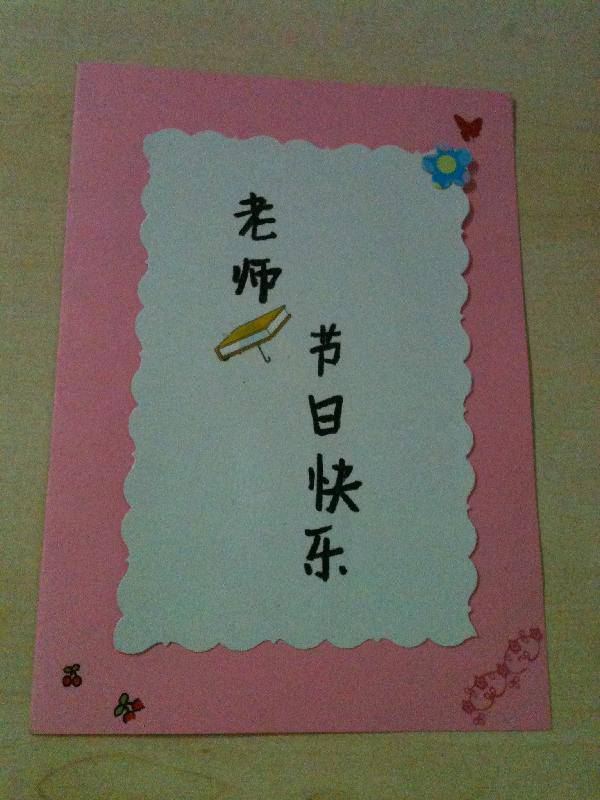 老师
节日快乐